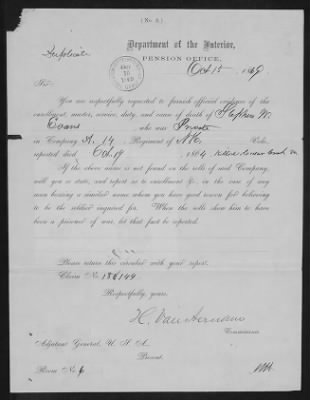 (No. 2.)
Duplicate
Department of the Interior,
PENSION OFFICE,
Oct 15 1869
Sir:
You are respectfully requested to furnish official evidence of the
enrollment, muster, service, duty, and cause of death of Stephen W.
Evans, who was Private
in Company A, 14 Regiment of N.H. Vols.,
reported died Oct. 19 1864, killed Cedar Creek Va
If the above named is not found on the rolls of said Company,
will you so state, and report as to enrollment &c., in the case of any
man bearing a similar name whom you have good reason for believing
to be the soldier inquired for. When the rolls show him to have
been a prisoner of war, let that fact be reported.
Please return this circular with your report.
Claim No. 181144
Respectfully, yours,
H. Van Aernam
Commissioner.
Adjutant General, U. S. A.
Present.
Room No. 6